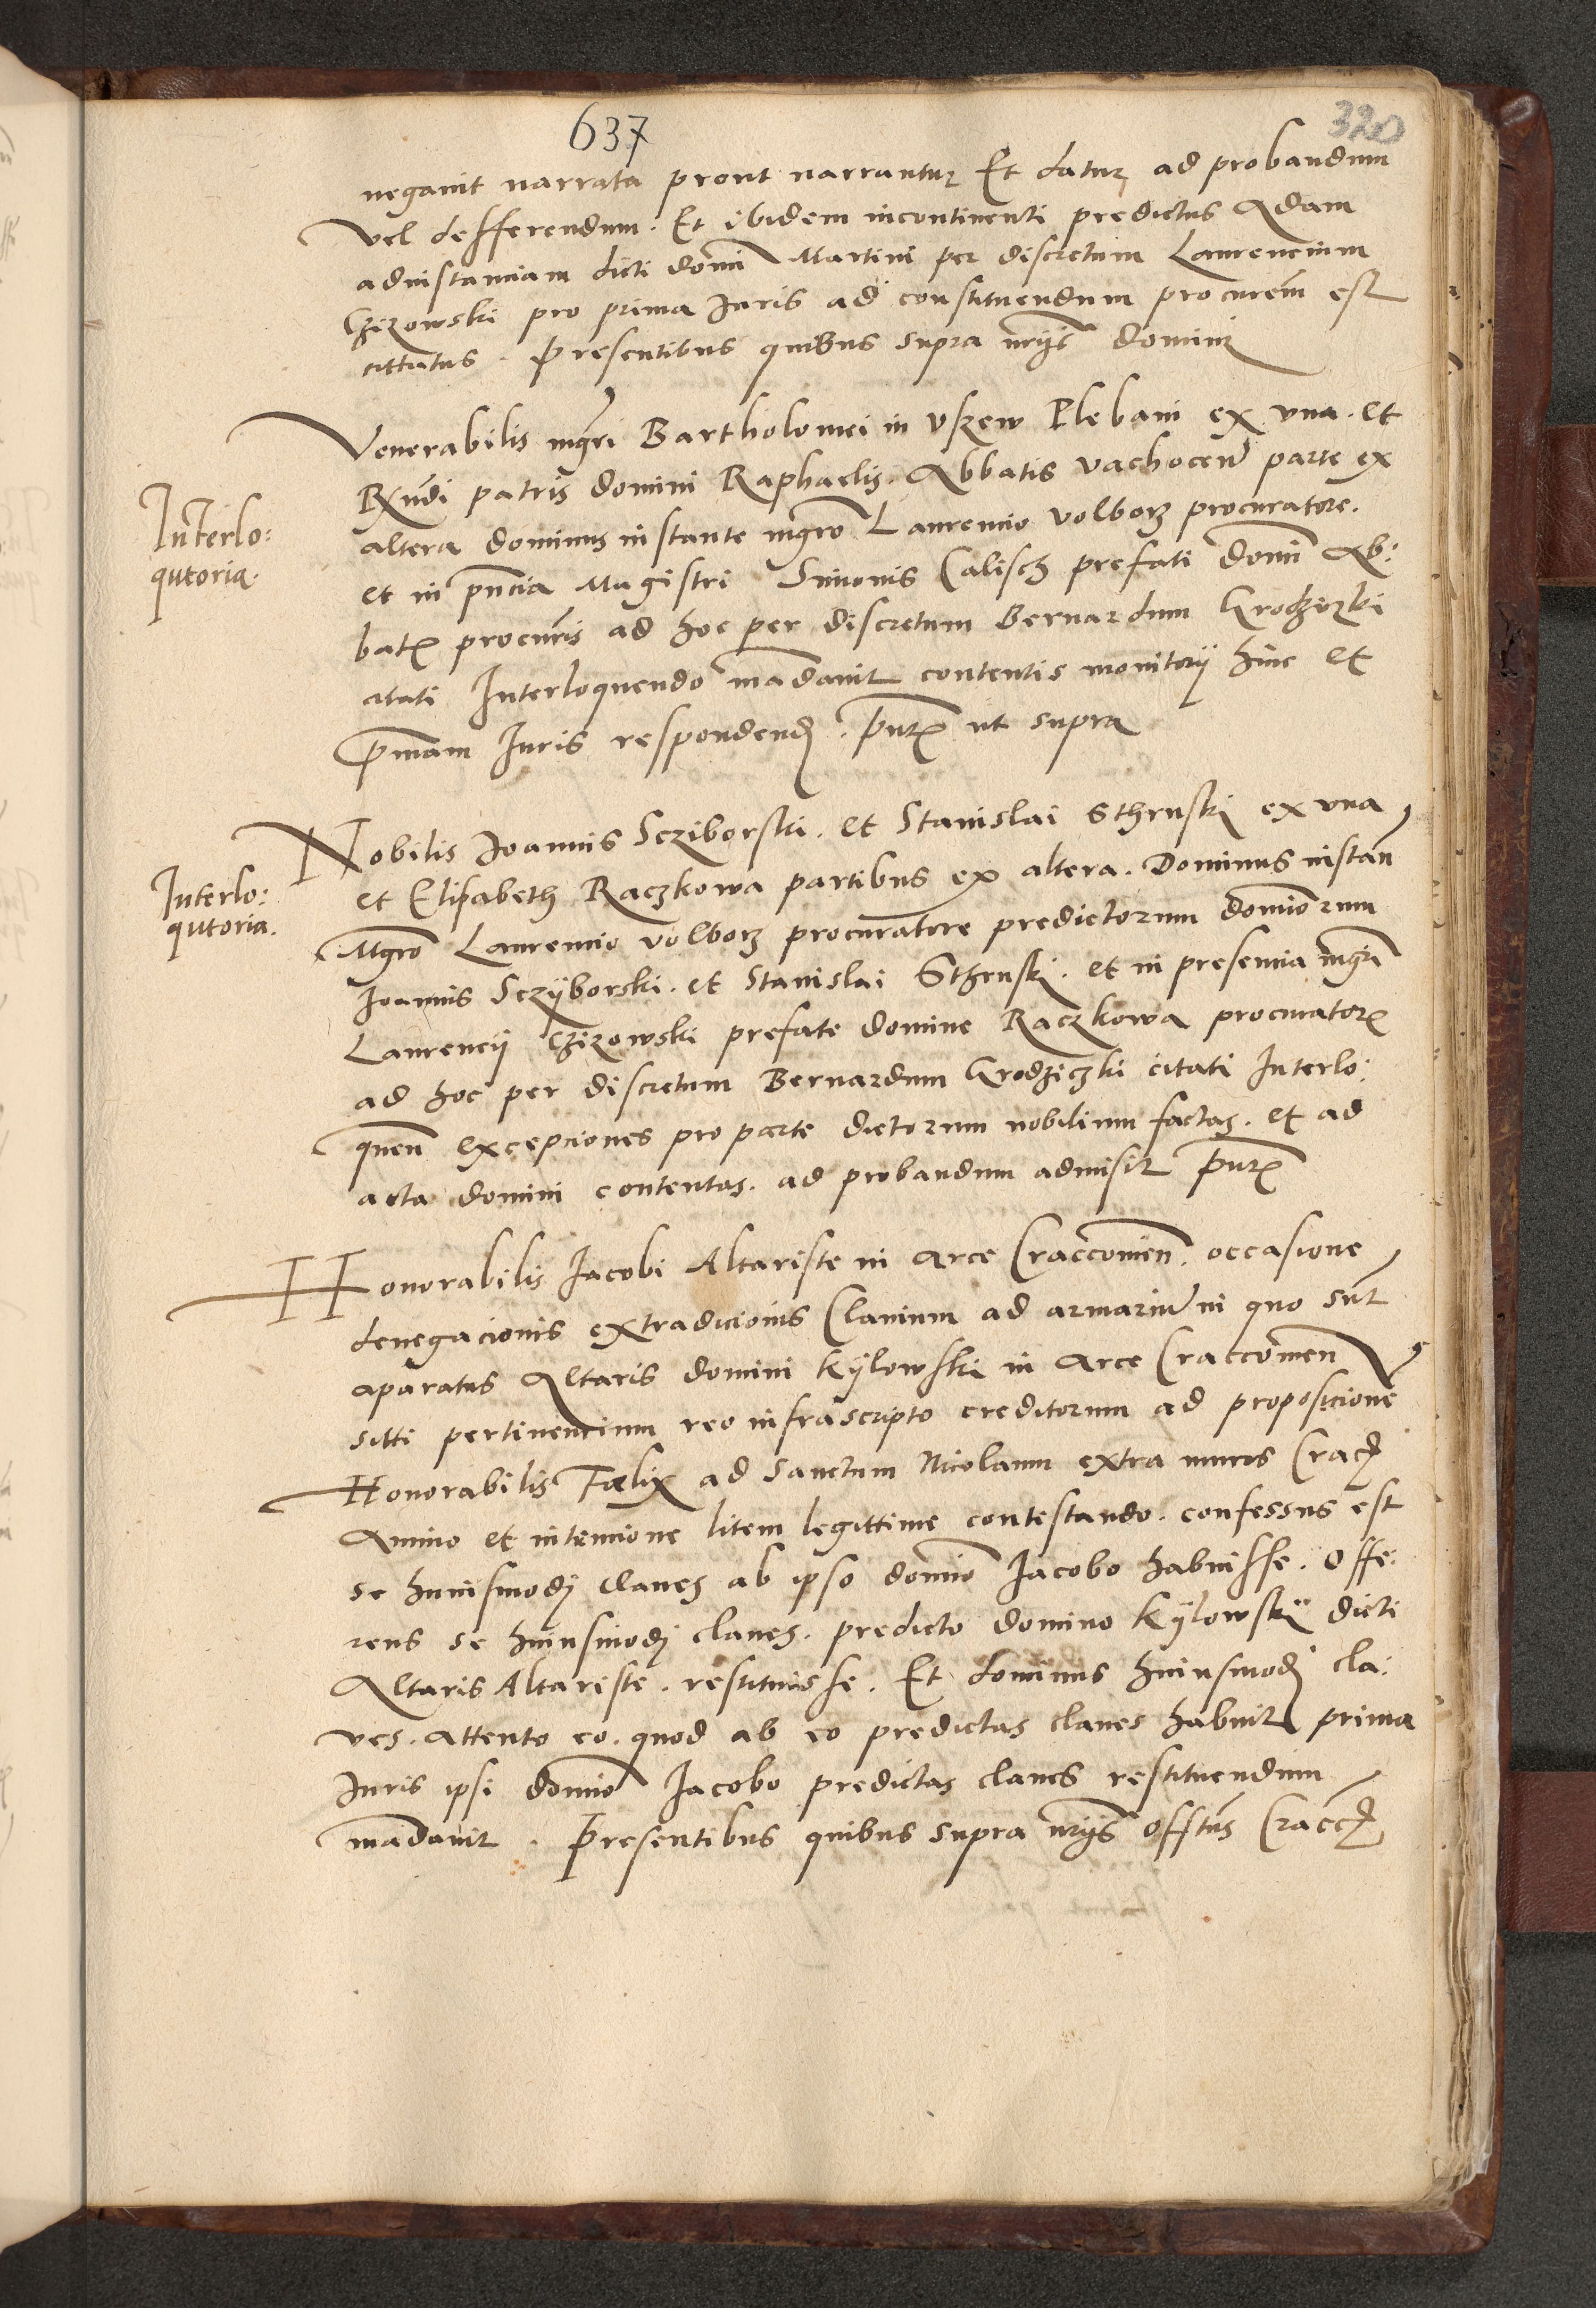 637
320
negauit narrata prout narrantur Et datur ad probandum
vel defferendum. Et ibidem incontinenti predictus Adam
adinstanciam dicti domī Martini per discretum Laurencium
Czizowski pro prima Iuris ad constituendum procurēm est
cittatus. Presentibus quibus supra nrijs domini
Venerabilis mgri Bartholomei in Uszew Plebani ex vna. et
Rxndi patris domini Raphaelis. Abbatis vachocen parte ex
Interlo:
qutoria.
altera dominus instante mgro Laurencio volborz procuratore.
et in pncia Magistri Simonis Calisch prefati domī Ab:
batis procuris ad hoc per discretum Bernardum Grodziczki
citati Interloquendo mādauit contentis monitorij hinc et
pmam Iuris respondend. pntibus ut supra
Nobilis Ioannis Scziborski. et Stanislai Sthruski ex vna
Interlo:
qutoria.
et Elisabeth Raczkowa partibus ex altera. Dominus instan
Mgro Laurencio volborz procuratore predictorum domiorum
Ioannis Sczÿborski. et Stanislai Sthruski. et in presencia mgri
Laurencij Czizowski prefate domine Raczkowa procuratoris
ad hoc per discretum Bernardum Grodziczki citati Interlo:
quen excepciones pro parte dictorum nobilium factas. et ad
acta domini contentas. ad probandum admisit pntibus
Honorabilis Iacobi Altariste in Arce Craccouien. occasione
denegacionis extradicionis Clauium ad armariū in quo sūt
aparatus Altaris domini Kÿlowski in Arce Craccouien
sitti pertinencium reo infrascripto creditorum ad proposicionē
Honorabilis Fœlix ad Sanctum Nicolaum extra muros Crac
Animo et intencione litem legittime contestando. confessus est
se huiusmodj claues ab ipso domio Iacobo habuisse. offe:
rens se huiusmodj claues. predicto domino Kÿlowskÿ dicti
Altaris Altariste. restituisse. Et dominus huiusmodj cla:
ues. Attento eo. quod ab eo predictas claues habuit prima
Iuris ipsi domio Iacobo predictas claues restituendum
mādauit. Presentibus quibus supra nrijs Cracc